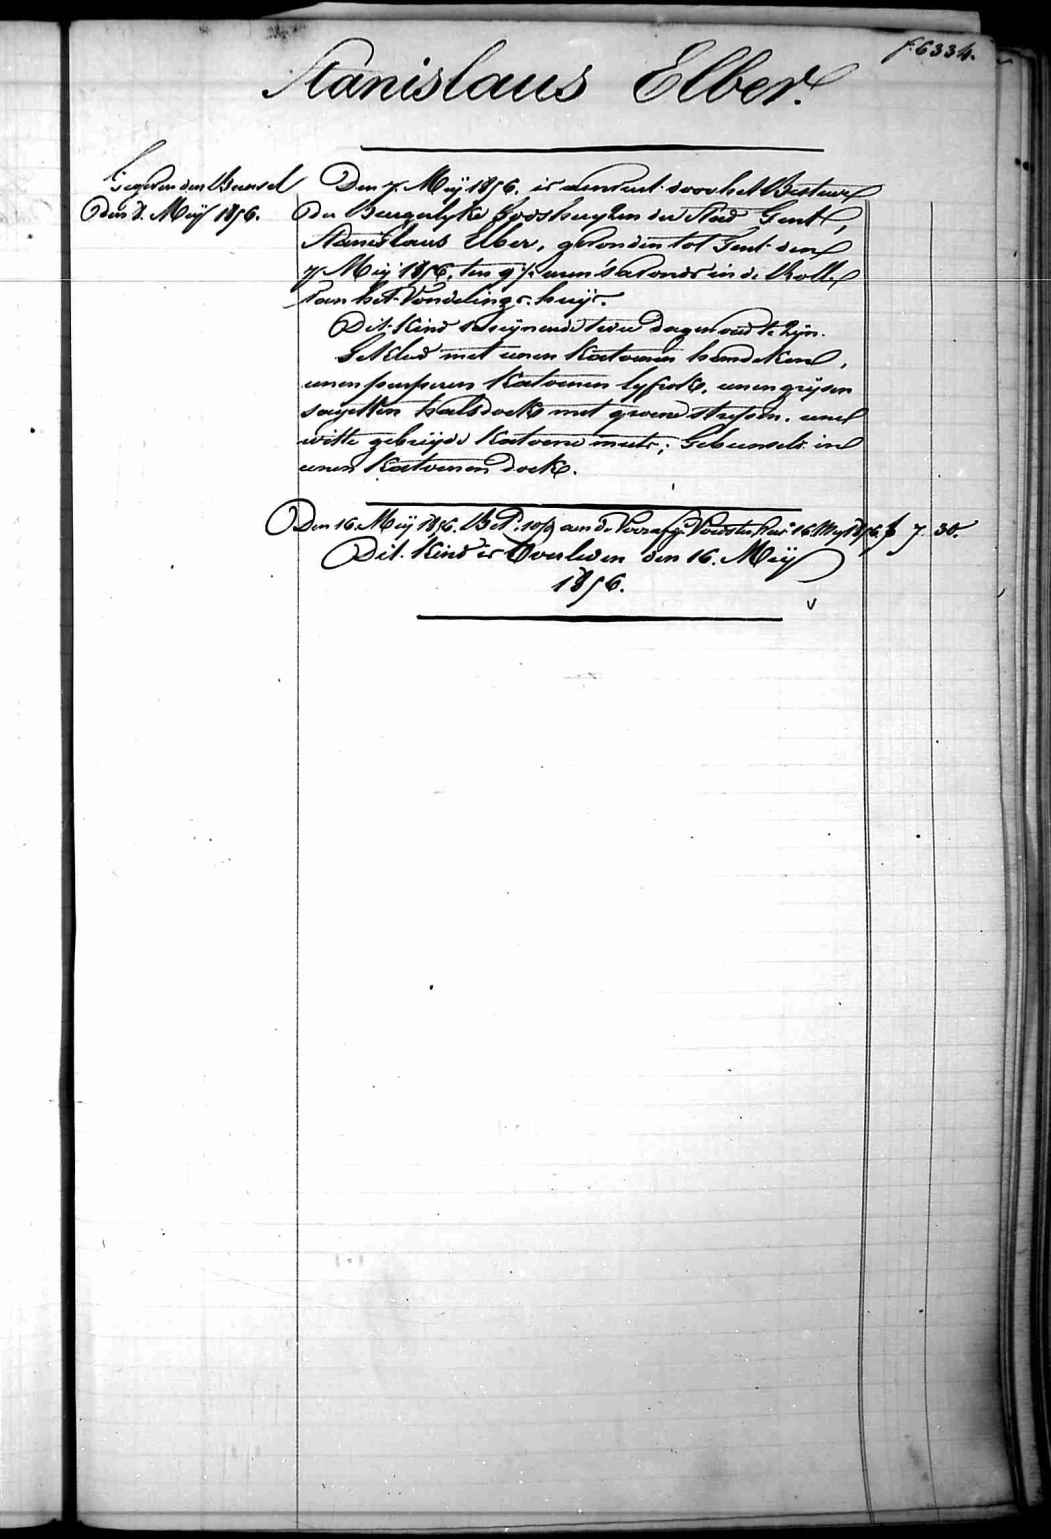 f. 6334.
Stanislaus Elber.
Gegeven den Bunsel
Den 8. Meÿ 1856.
Den 7. Meÿ 1856. is aenveert door het Bestuur
Der Burgerlyke Godshuyzen der Stad Gent,
Stanislaus Elber, gevonden tot Gent den
7 Meÿ 1856, ten 9 ½ uren 's avonds in de Rolle
van het Vondelings-huÿs.
Dit Kind schÿnende twee dagen oud te zÿn.
Gekleed met eenen Katoenen hemdeken,
eenen purperen Katoenen lyfrok, eenen grÿsen
sayetten halsdoek met groene strepen. eene
witte gebrÿde Katoene muts; Gebunselt in
eenen Katoenen doek.
Den 16 Meÿ 1856. Bet. 10/9 aen de Voorsten 16 Mey 1856 f 7. 30.
Dit Kind is Overleden den 16. Meÿ
1856.